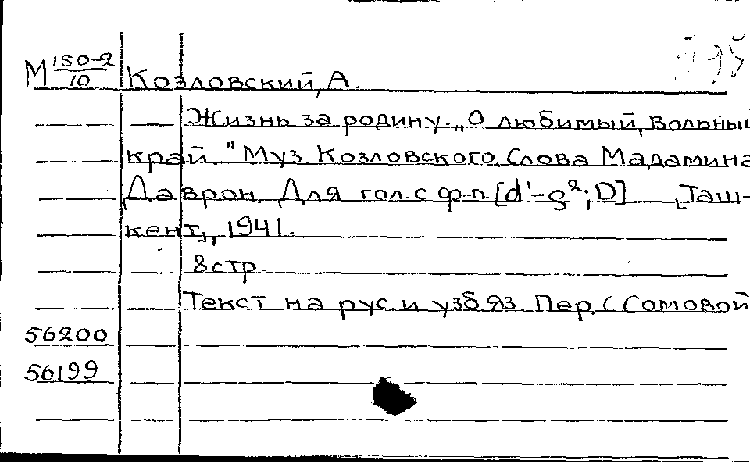 М 180-2/10 Козловский, А.
Жизнь за родину. „О любимый, вольный
край." Муз Козловского. Слова Мадамина
Даврон. Для гол с ф-п. [d'-g²; D] [Таш-
кент], 1941.
8 стр.
Текст на рус и узб яз. Пер. С Сомовой
56200
56199